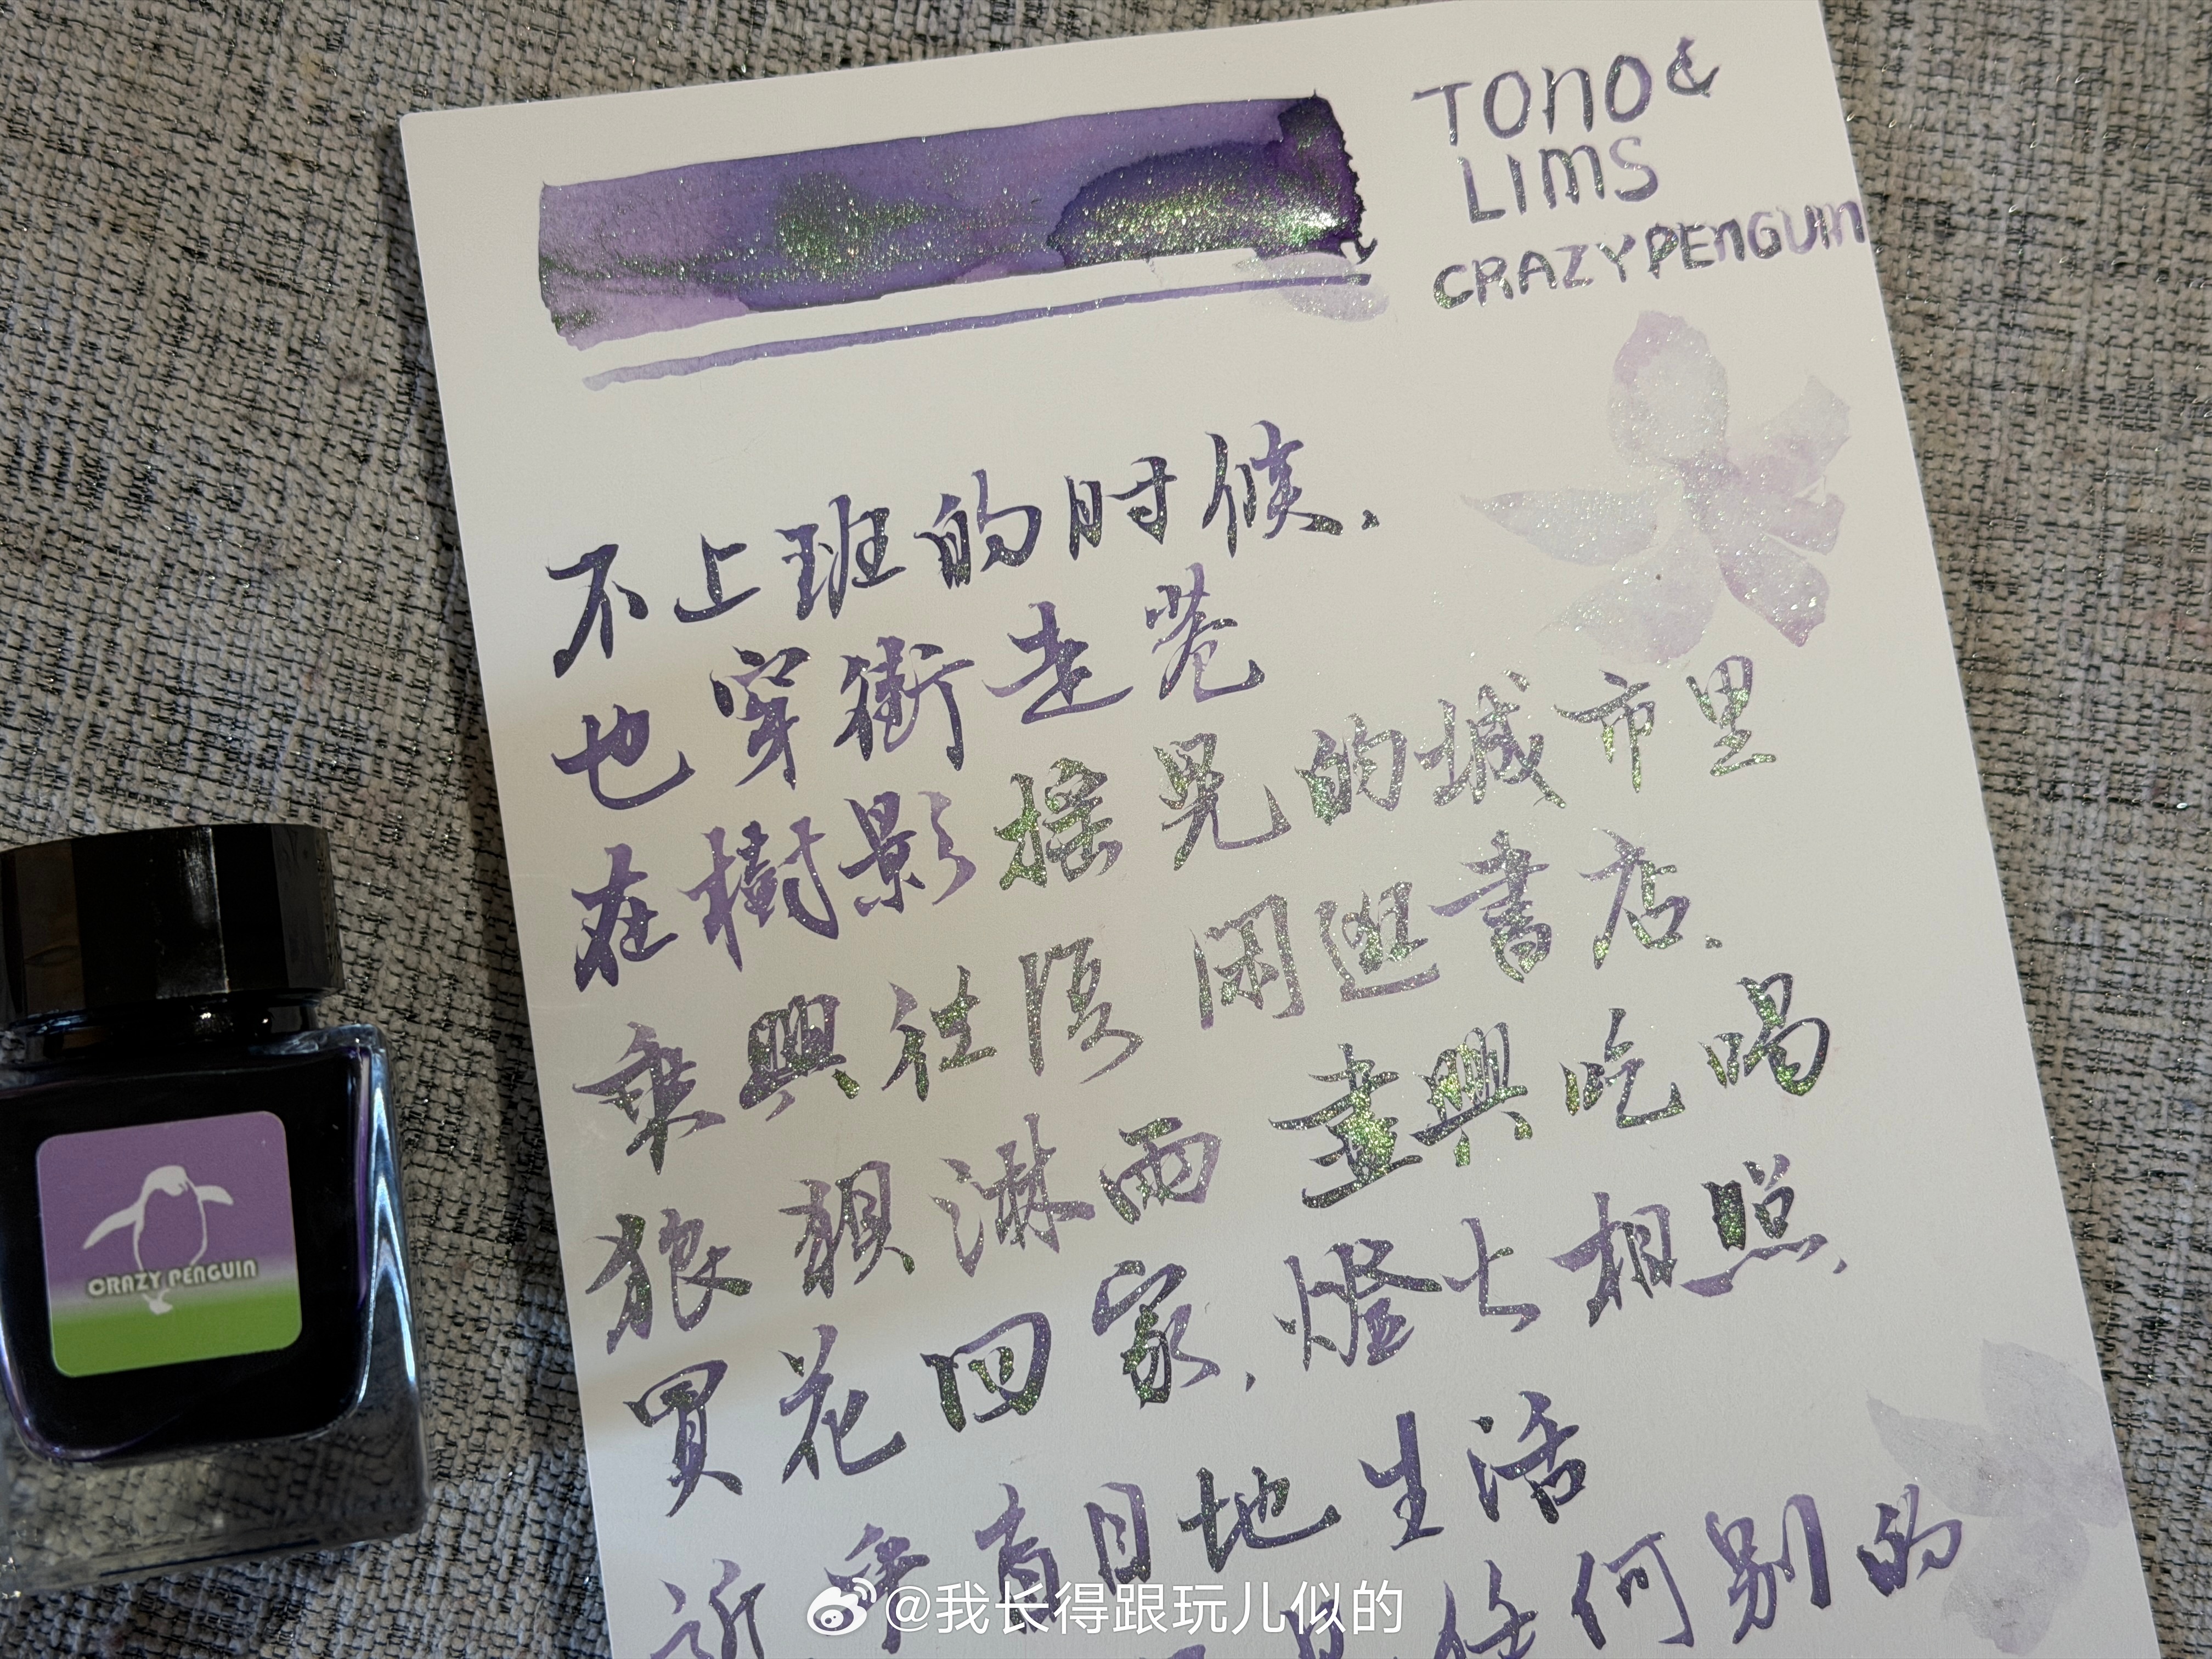 TONO&
LIMS
CRAZY PENGUIN
不上班的时候.
也穿街走巷
在樹影摇晃的城市里
乘興往復 闲逛書店.
狼狽淋雨 盡興吃喝
買花回家.燈火相照.
近乎盲目地生活
任何别的
CRAZY PENGUIN
@我长得跟玩儿似的